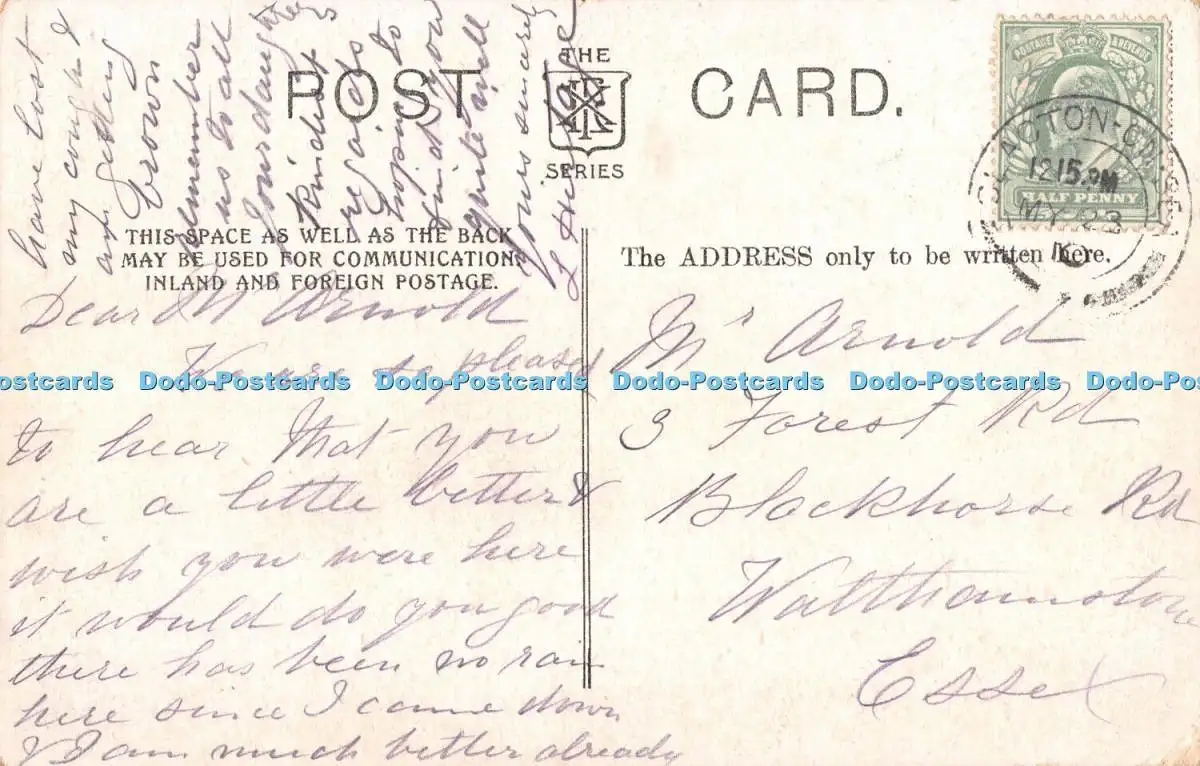 POST CARD.
THE
SERIES
THIS SPACE AS WELL AS THE BACK
MAY BE USED FOR COMMUNICATIONS
INLAND AND FOREIGN POSTAGE.
The ADDRESS only to be written here.
POSTAGE & REVENUE
HALF PENNY
CLACTON-ON-SEA
12 15 PM
MY 23
Dear Mr Arnold
so pleased
to hear that you
are a little better &
wish you were here
it would do you good
there has been no rain
here since I came down
& I am much better already
have lost
my cough &
am getting
brown
remember
us to all
your daughters
kindest
regards
hoping to
find you
quite well
Yours sincerely
Mr Arnold
3 Forest Rd
Blackhorse Rd
Walthamstow
Essex
Dodo-Postcards Dodo-Postcards Dodo-Postcards Dodo-Postcards Dodo-Postcards